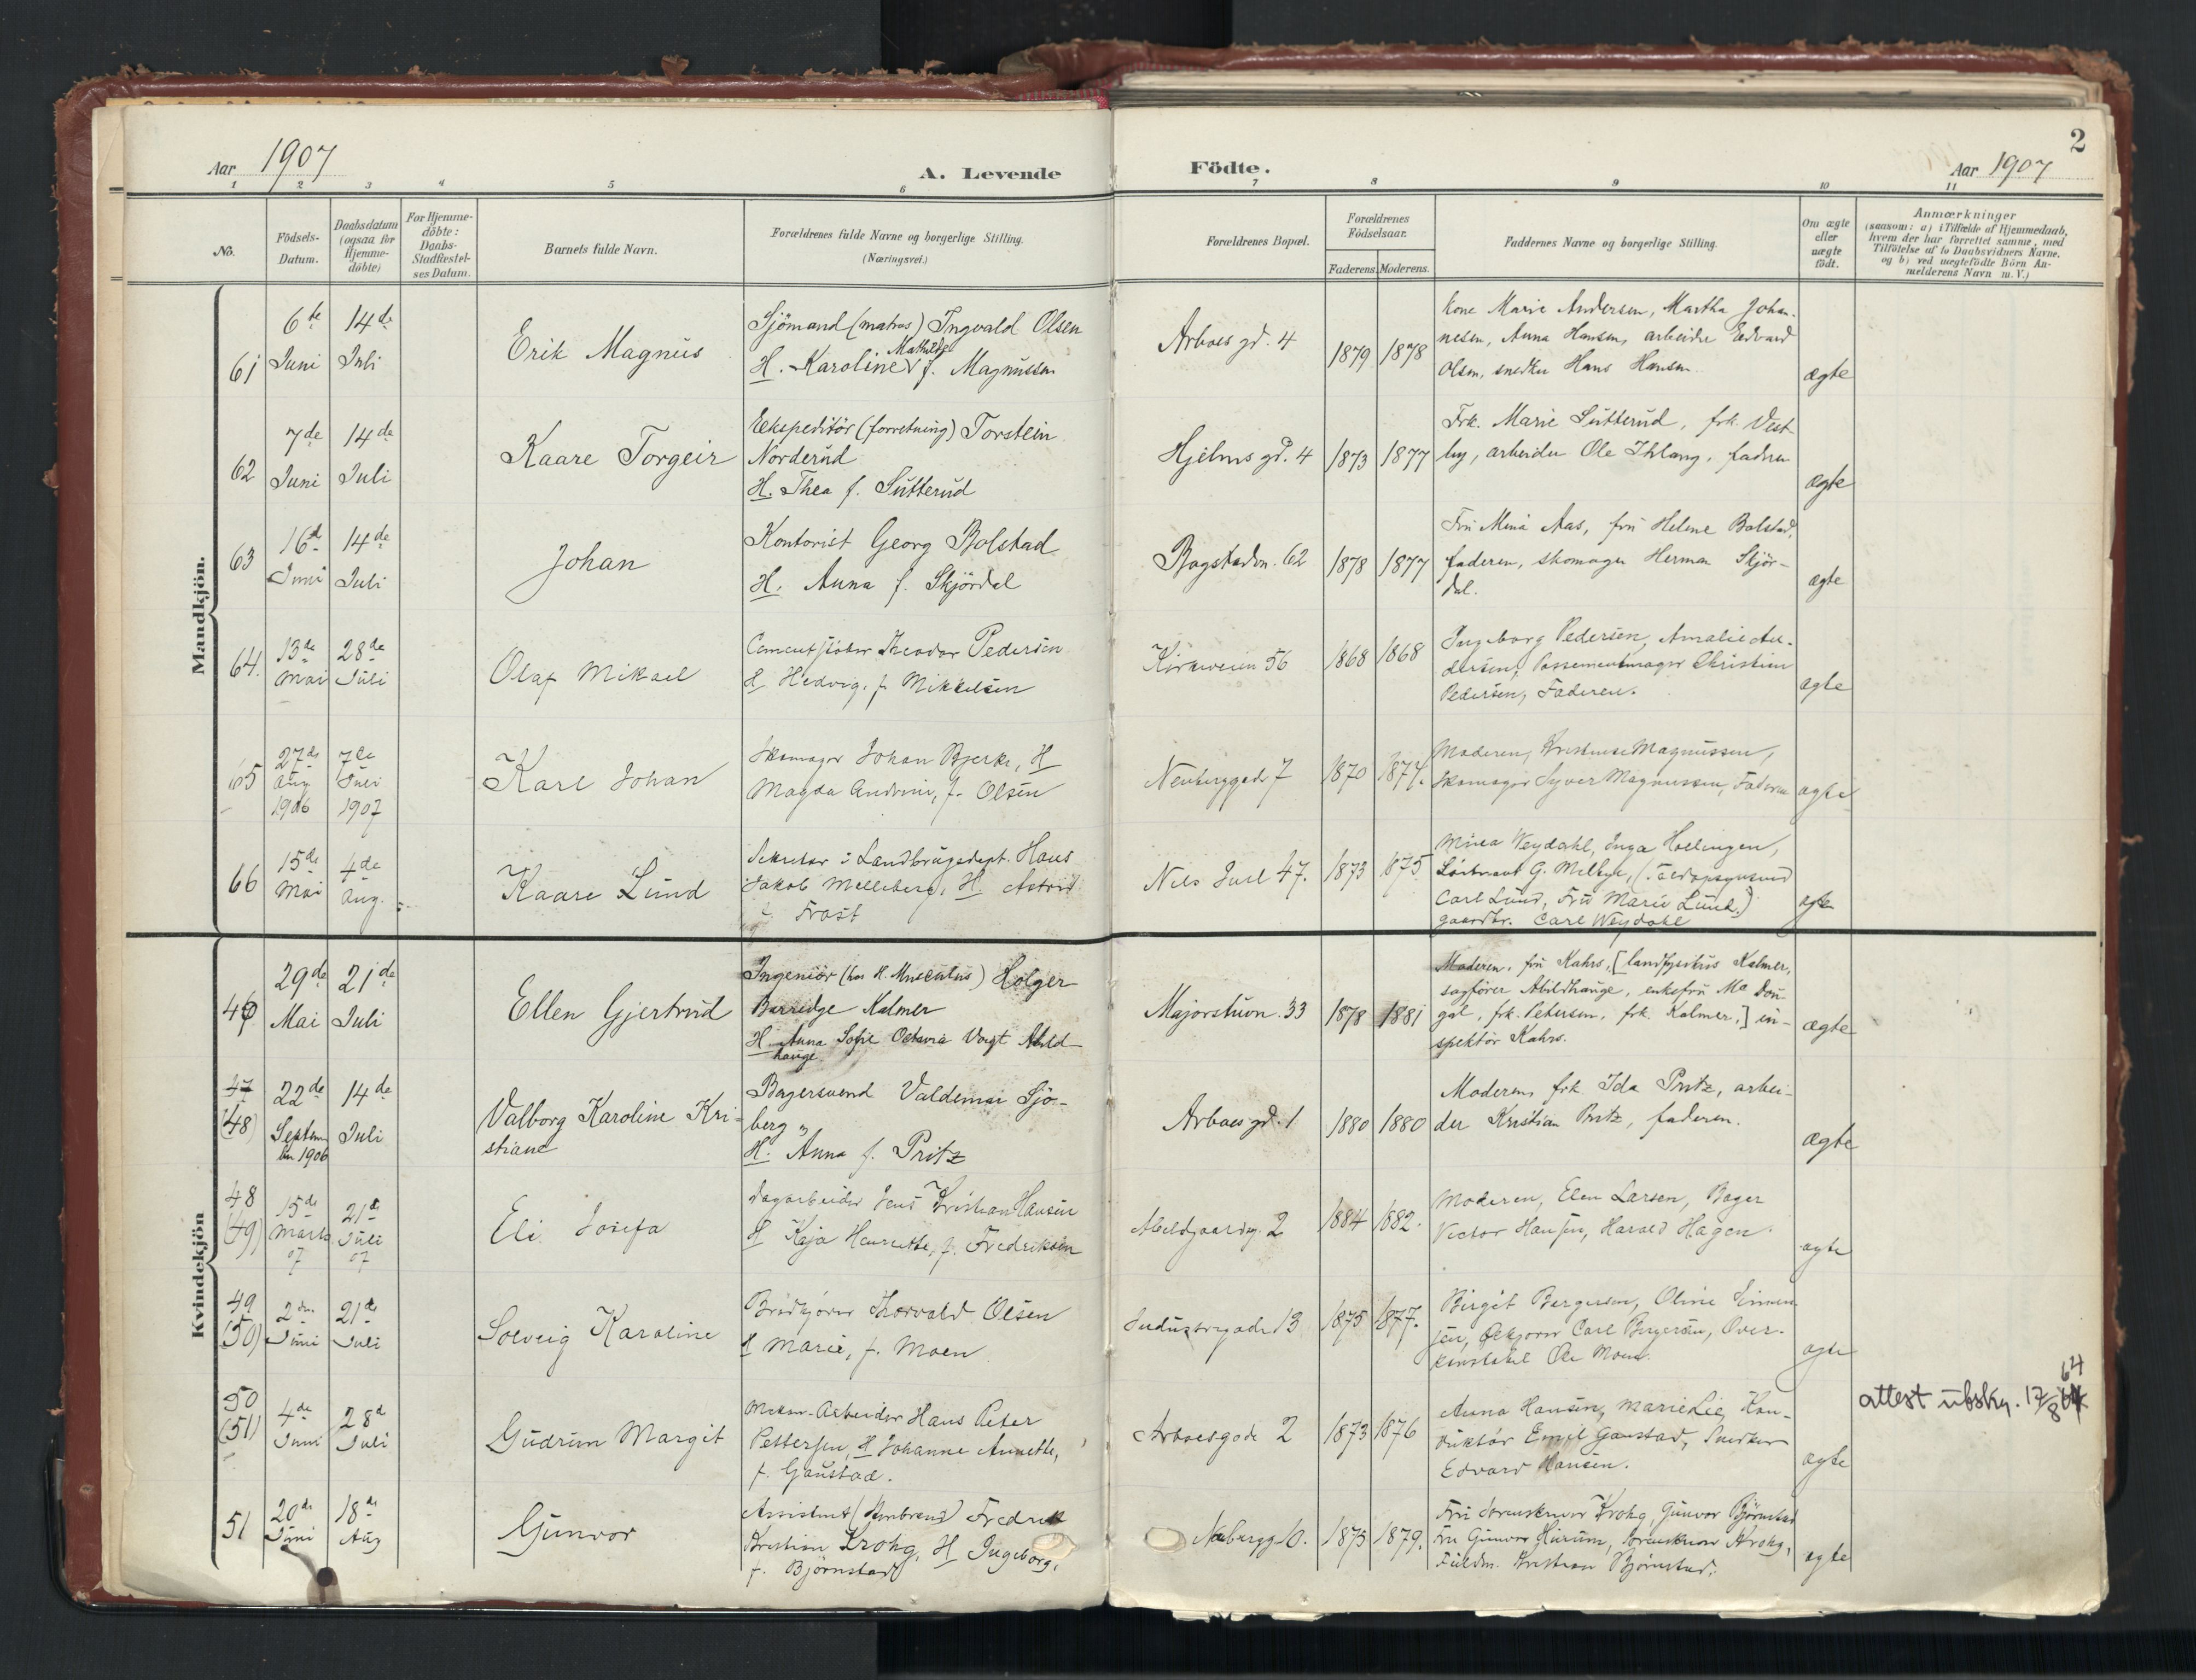 2
Aar 1907
A. Levende
Födte.
Aar 1907
1 2 3 4 5 6 7 8 9 10 11
No.
Födsels-
Datum.
Daabsdatum
(ogsaa for
Hjemme-
döbte)
For Hjemme-
döbte:
Daabs-
Stadfestel-
ses Datum.
Barnets fulde Navn.
Forældrenes fulde Navne og borgerlige Stilling.
(Næringsvei.)
Forældrenes Bopæl.
Forældrenes
Födselsaar.
Faderens. Moderens.
Faddernes Navne og borgerlige Stilling.
Om ægte
eller
uægte
födt.
Anmærkninger
(saasom: a) i Tilfælde af Hjemmedaab,
hvem der har forrettet samme, med
Tilföielse af to Daabsvidners Navne.
og b) ved uægtefödte Börn An-
melderens Navn m. V.)
Mandkjön.
61
6te
Juni
14de
Juli
Erik Magnus
Sjömand (matros) Ingvald Olsen
Mathilde
H. Karoline f. Magnussen
Arboes gd. 4
1879 1878
Kone Marie Andersen, Martha Johan-
nesen, Anna Hansen, arbeider Edvard
Olsen, snedker Hans Hansen
ægte
62
7de
Juni
14de
Juli
Kaare Torgeir
Ekspeditör (forretning) Torstein
Norderud
H. Thea f. Sutterud
Hjelms gd. 4
1873 1877
Frk. Marie Sutterud, frk. Vest-
by, arbeider Ole Ihlang, faderen
ægte
63
16de
Juni
14de
Juli
Johan
Kontorist Georg Bolstad
H. Anna f. Skjördal
Bogstadvn. 62
1878 1877
Fru Mina Aas, fru Helene Bolstad,
faderen, skomager Herman Skjör-
dal.
ægte
64.
13de
Mai
28de
Juli
Olaf Mikael
Cementstöber Theodor Pedersen
H Hedvig, f. Mikkelsen
Kirkeveien 56
1868 1868
Ingeborg Pedersen, Amalie An-
dersen, Possementmager Christian
Pedersen, Faderen.
ægte
65
27de
Aug
1906
7de
Juli
1907
Karl Johan
Skomager Johan Bjerke, H
Magda Andrine, f. Olsen
Neuberggade 7
1870 1874.
Moderen, Kristense Magnussen,
Skomager Syver Magnussen, Faderen
ægte
66
15de
Mai
4de
Aug.
Kaare Lund
Sekretær i Landbrugsdept. Hans
Jakob Mellbye, H Astrid
f. Frost
Nils Juel 47.
1873 1875
Minea Weydahl, Inga
Löitnant G. Mellbye,
Carl Lund, Fru Marie Lund.)
gaardbr. Carl Weydahl
ægte
Kvindekjön
46
29de
Mai
21de
Juli
Ellen Gjertrud
Ingeniör (hos H. Musculus) Holger
Borredge Kalmer
H. Anna Sofie Octavia Voigt Abild-
hauge
Majorstuvn. 33
1878 1881
Moderen, fru Kahrs, [landfysikus Kalmer,
sagförer Abildhauge, enkefru Mc Dou-
gal, frk. Petersen, frk. Kalmer,] in-
spektör Kahrs.
ægte
47
(48)
22de
Septem-
ber 1906
14de
Juli
Valborg Karoline Kri-
stiane
Bagersvend Valdemar Sjö-
berg
H. Anna f. Pritz
Arboes gd. 1
1880 1880
Moderen, frk Ida Pritz, arbei-
der Kristian Pritz, faderen.
ægte
48
(49)
15de
Marts
07
21de
Juli
07
Eli Josefa
Dagarbeider Jens Kristian Hansen
H Kaja Henriette, f. Fredriksen
Abildgaardsg. 2
1884 1882.
Moderen, Elen Larsen, Bager
Victor Hansen, Harald Hagen
ægte
49
(50)
2den
Juni
21de
Juli
Solveig Karoline
Brödkjörer Thorvald Olsen
H Marie, f. Moen
Industrigade 13
1875 1877.
Birgit Bergersen, Oline
Carl Bergersen, Over-
Ole Moen.
ægte
50
(51)
4de
Juni
28de
Juli
Gudrun Margit
Mekan. Arbeider Hans Peter
Pettersen, H Johanne Annette,
f. Gaustad.
Arboesgade 2
1873 1876
Anna Hansen, Marie Lie, Kon-
duktör Emil Gaustad, Snedker
Edvard Hansen.
ægte
attest utsky. 17/8 64
51
20de
Juni
18de
Aug
Gunvor
Assistent Fredrik
Kristian Krohg, H Ingeborg,
f. Björnstad
Neubergg 10.
1873 1879.
Fru Sorenskriver Krohg, Gunvor Björnstad
Fru Gunvor Hurum, Sorenskriver Krohg,
Fuldm. Kristian Björnstad.
ægte